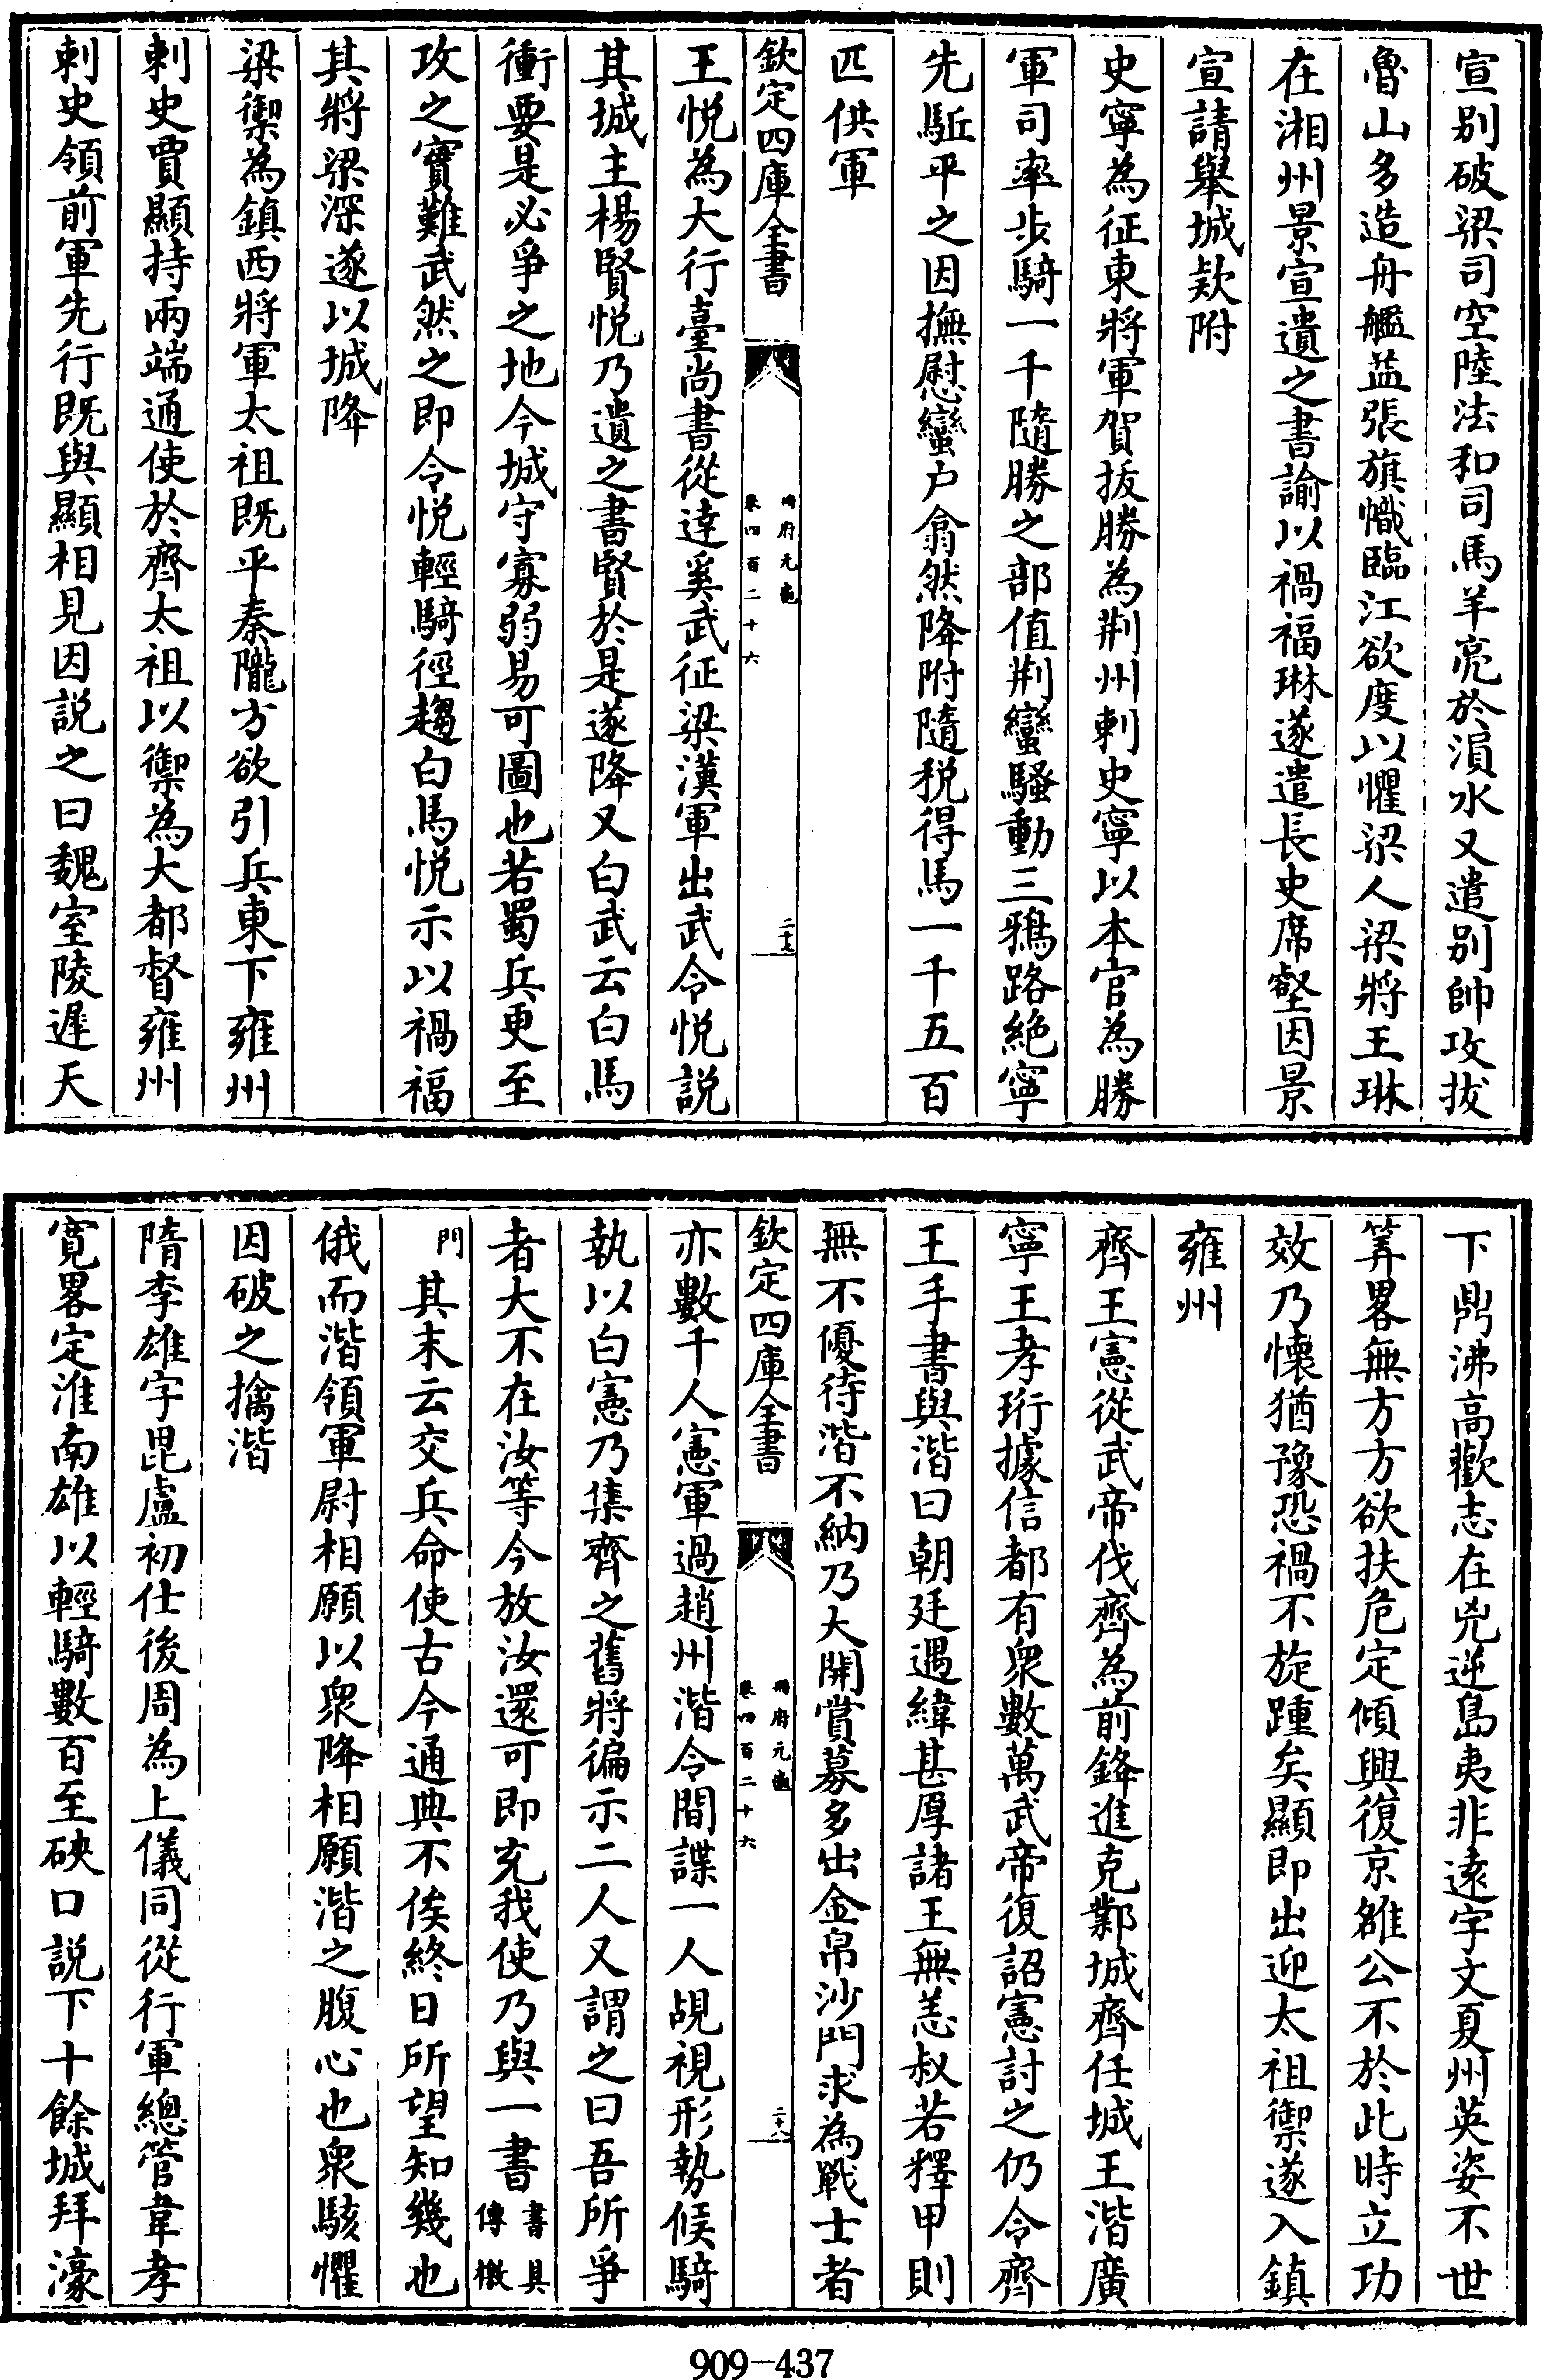 宣别破梁司空陸法和司馬羊亮於溳水又遣别帥攻拔
魯山多造舟艦益張旗幟臨江欲度以懼梁人梁將王琳
在湘州景宣遺之書諭以禍福琳遂遣長史席壑因景
宣請舉城欵附
史寧為征東將軍賀拔勝為荆州刺史寧以本官為勝
軍司率步騎一千隨勝之部值荆蠻騷動三鵶路絶寧
先駈平之因撫慰蠻户翕然降附隨税得馬一千五百
匹供軍
欽定四庫全書
冊府元龜
卷四百二十六
二十七
王悦為大行臺尚書從逹奚武征梁漢軍出武令悦說
其城主楊賢悦乃遺之書賢於是遂降又白武云白馬
衝要是必爭之地今城守寡弱易可圖也若蜀兵更至
攻之實難武然之即令悦輕騎徑趨白馬悦示以禍福
其將梁深遂以城降
梁禦為鎮西將軍太祖既平秦隴方欲引兵東下雍州
刺史賈顯持兩端通使於齊太祖以禦為大都督雍州
刺史領前軍先行既與顯相見因説之曰魏室陵遲天
下鼎沸高歡志在兇逆島夷非遠宇文夏州英姿不世
筭畧無方方欲扶危定傾興復京雒公不於此時立功
效乃懷猶豫恐禍不旋踵矣顯即出迎太祖禦遂入鎮
雍州
齊王憲從武帝伐齊為前鋒進克鄴城齊任城王湝廣
寧王孝珩據信都有衆數萬武帝復詔憲討之仍令齊
王手書與湝曰朝廷遇緯甚厚諸王無恙叔若釋甲則
無不優待湝不納乃大開賞募多出金帛沙門求為戰士者
欽定四庫全書
冊府元龜
卷四百二十六
二十八
亦數千人憲軍過趙州湝令間諜一人覘視形勢候騎
執以白憲乃集齊之舊將徧示二人又謂之曰吾所爭
者大不在汝等今放汝還可即充我使乃與一書書具傳檄
門其末云交兵命使古今通典不俟終日所望知幾也
俄而湝領軍尉相願以衆降相願湝之腹心也衆駭懼
因破之擒湝
隋李雄字毘盧初仕後周為上儀同從行軍總管韋孝
寛畧定淮南雄以輕騎數百至硤口説下十餘城拜濠
909—437